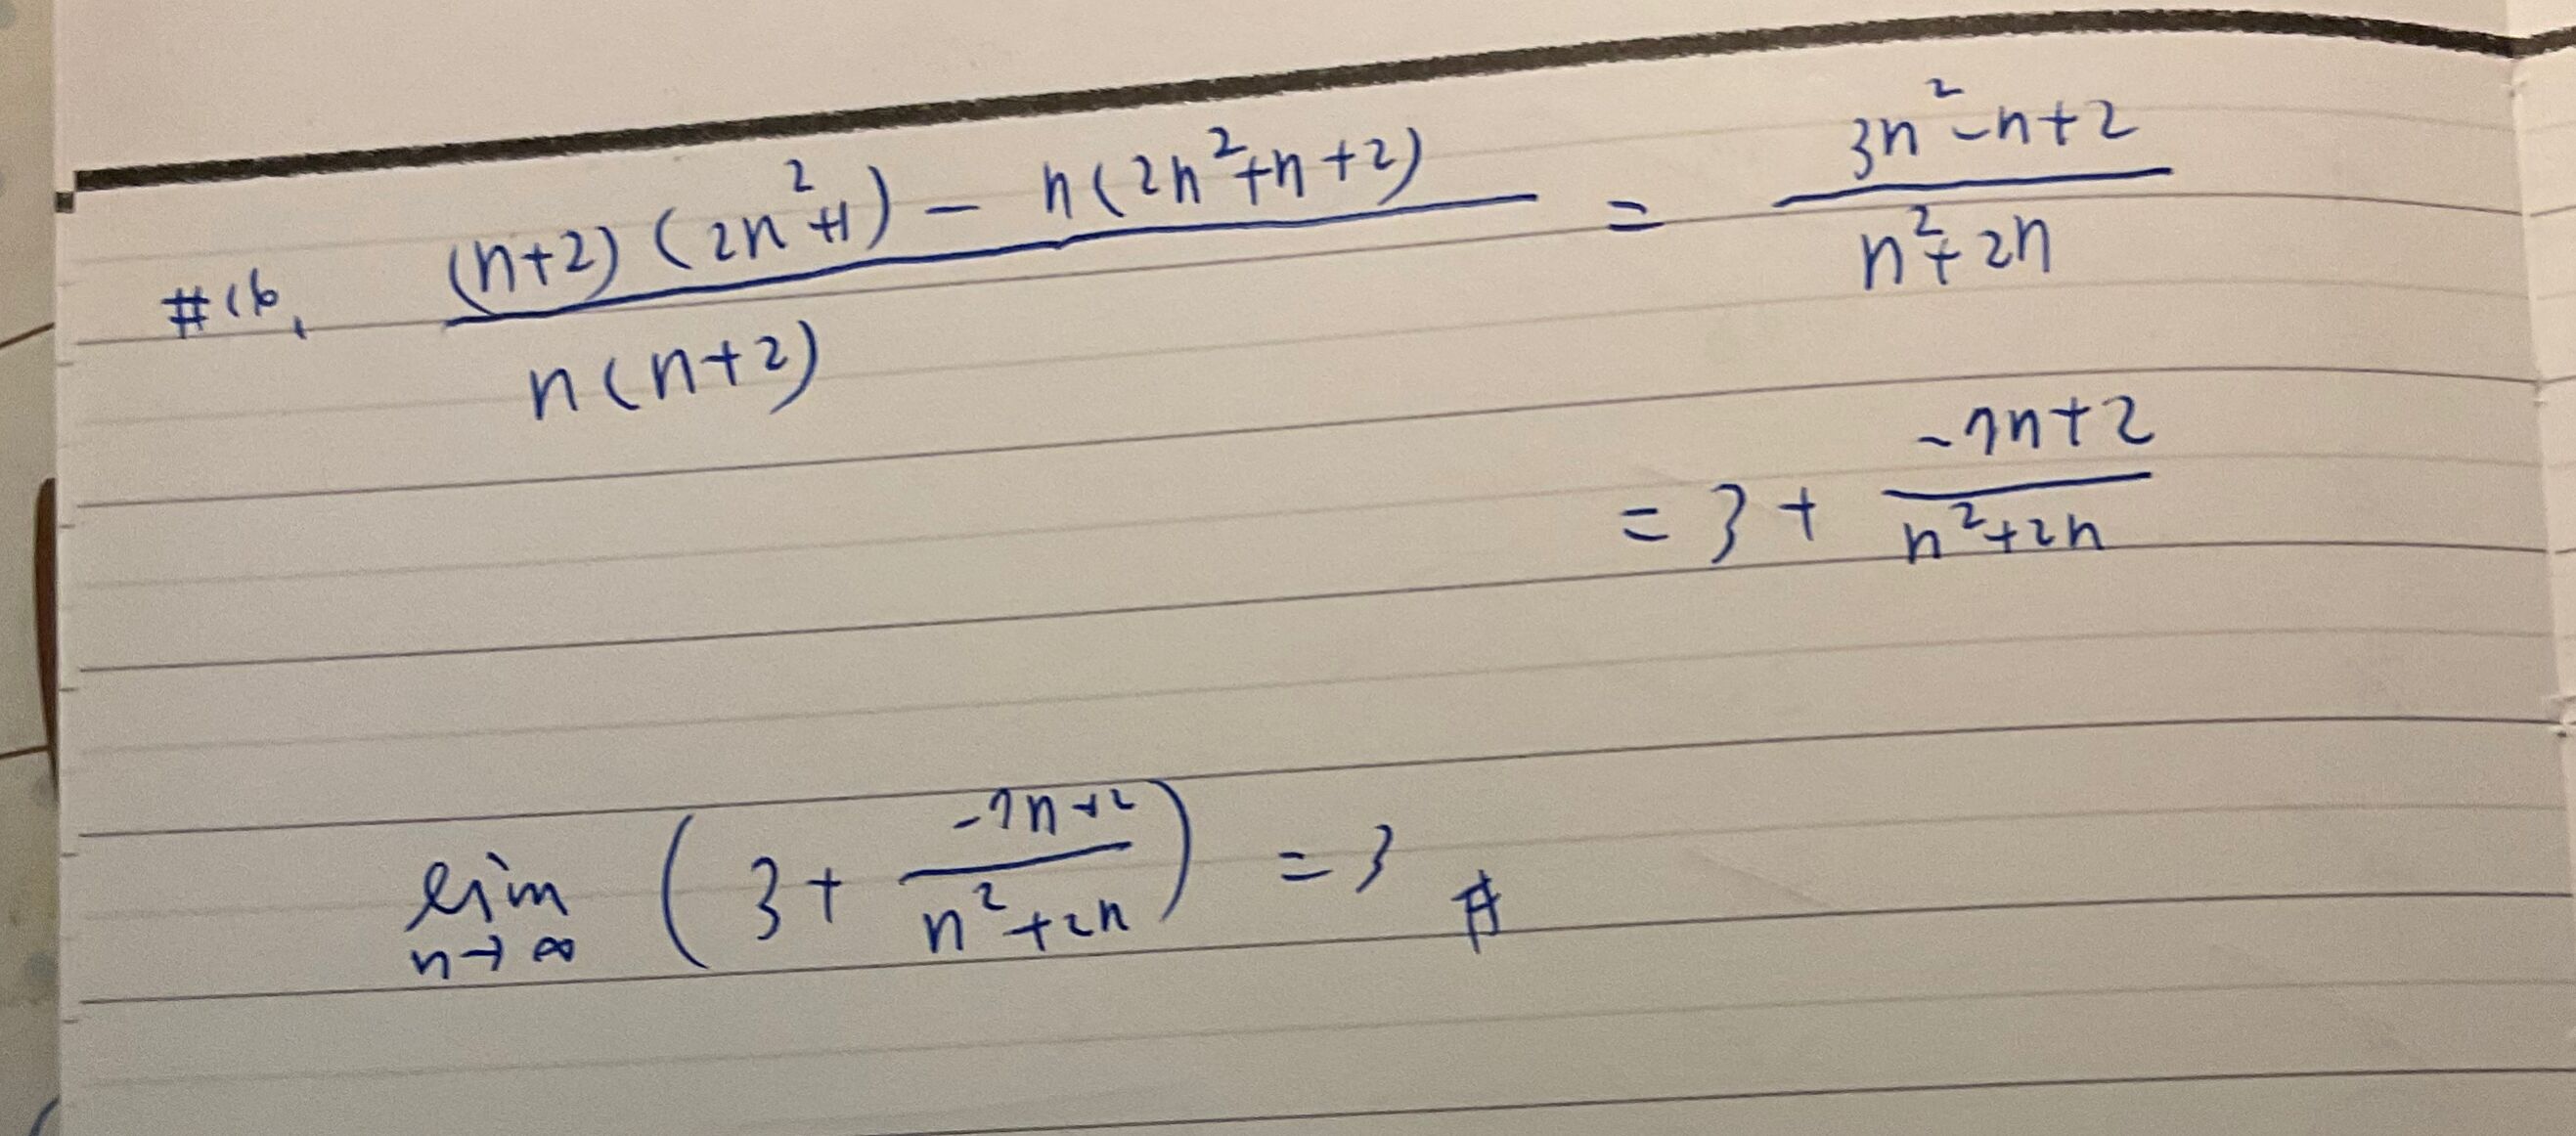 #16. \frac{(n+2)(2n^2+1) - n(2n^2+n+2)}{n(n+2)} = \frac{3n^2-n+2}{n^2+2n}
= 3 + \frac{-7n+2}{n^2+2n}
\lim_{n→∞} (3 + \frac{-7n+2}{n^2+2n}) = 3 #